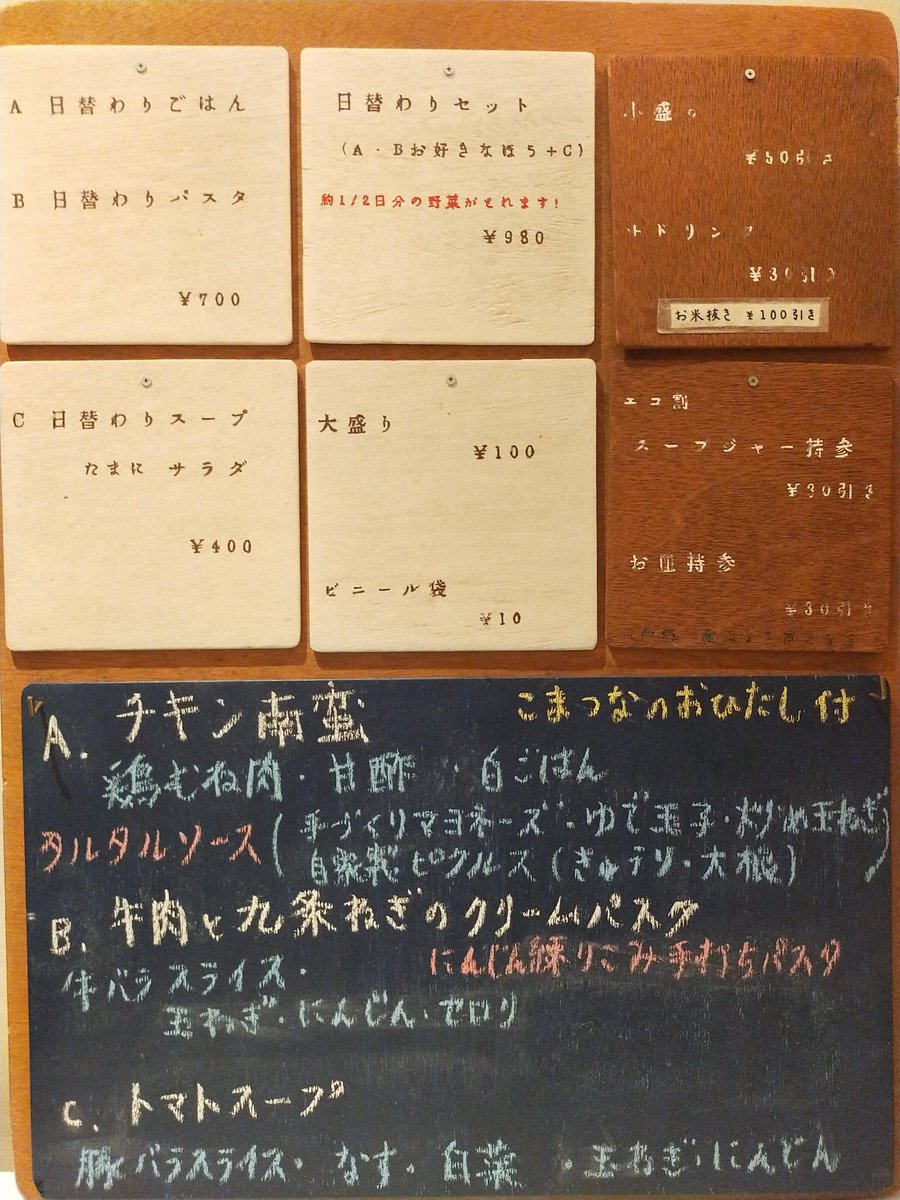 A 日替わりごはん
B 日替わりパスタ
¥700
日替わりセット
(A・Bお好きなほう+C)
約1/2日分の野菜がとれます!
¥980
小盛り
¥50引き
ドリンク
¥30引き
お米抜き ¥100引き
C 日替わりスープ
たまに サラダ
¥400
大盛り
¥100
ビニール袋
¥10
エコ割
スープジャー持参
¥30引き
お皿持参
¥30引き
A. チキン南蛮 こまつなのおひたし付
鶏むね肉・甘酢・白ごはん
タルタルソース(手づくりマヨネーズ・ゆで玉子・炒め玉ねぎ
自家製ピクルス(きゅうり・大根))
B. 牛肉と九条ねぎのクリームパスタ
にんじん練りこみ手打ちパスタ
牛バラスライス・
玉ねぎ・にんじん・セロリ
C. トマトスープ
豚バラスライス・なす・白菜・玉ねぎ・にんじん